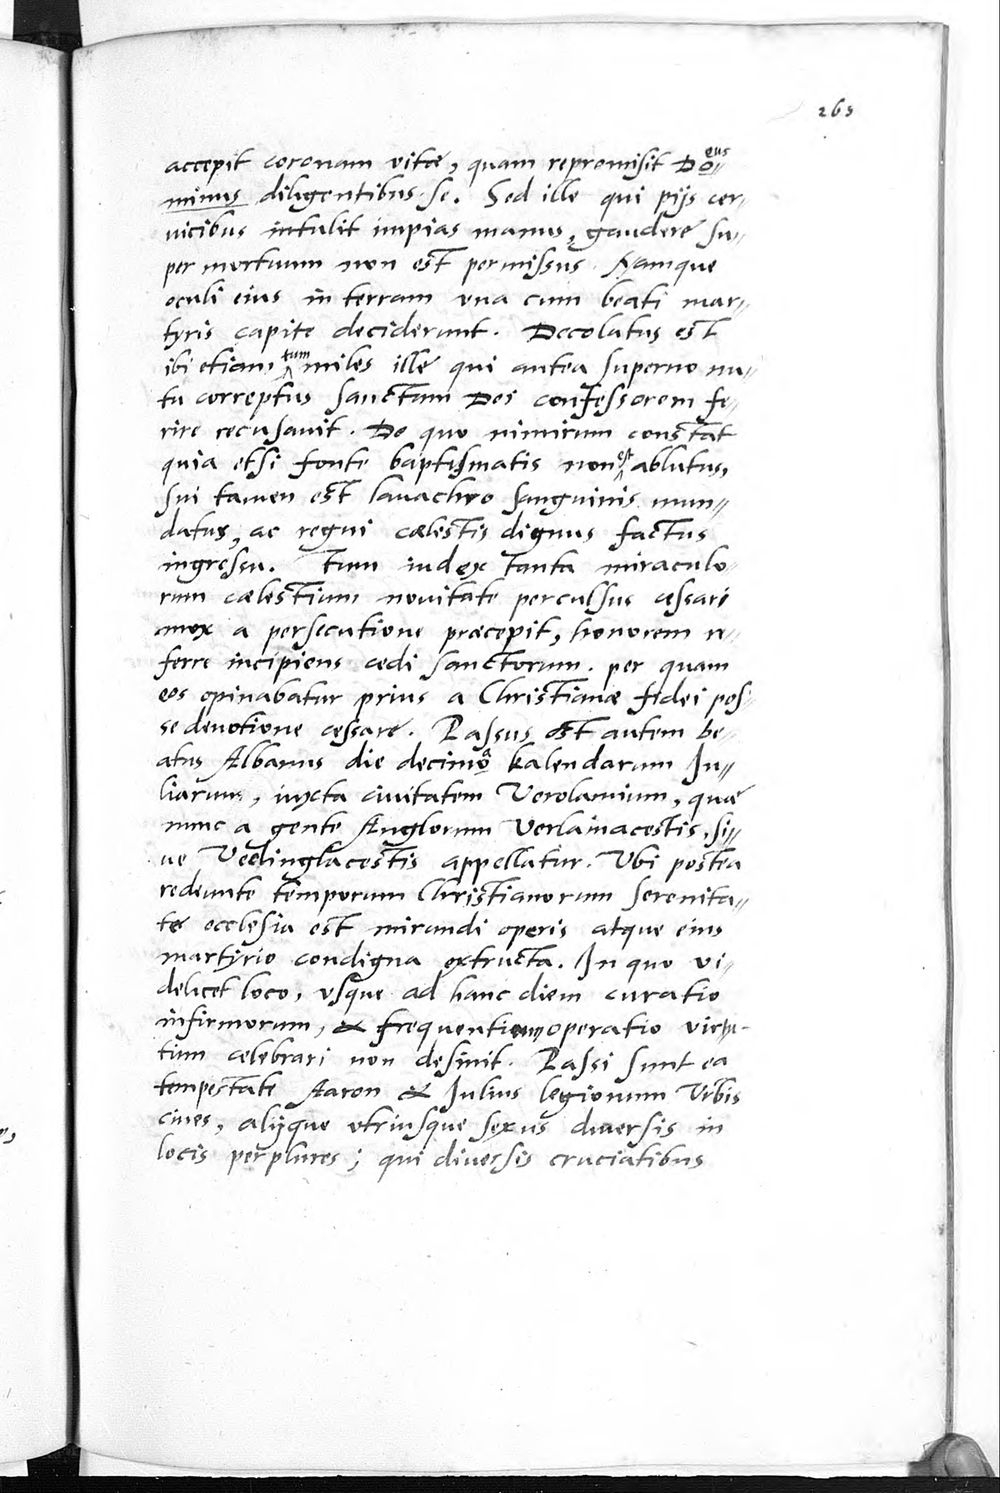 263
accepit coronam vitæ, quam repromisit Do//eus
minus diligentibus se. Sed ille qui pijs cer//
uicibus intulit impias manus, gaudere su//
per mortuum non est permissus. Namque
oculi eius in terram vna cum beati mar//
tyris capite deciderunt. Decolatus est
ibi etiam tum miles ille qui antea superno nu//
tu correptus sanctam Dei confessorem fe//
rire recusauit. De quo nimirum constat
quia etsi fonte baptismatis non est ablutus,
sui tamen est lauachro sanguinis mun//
datus, ac regni cælestis dignus factus
ingressu. Tum iudex tanta miraculo//
rum cælestium nouitate perculsus cessari
mox a persecutione præcepit, honorem re//
ferre incipiens cædi sanctorum. per quam
eos opinabatur prius a Christianæ fidei pos//
se deuotione cessare. Passus est autem be//
atus Albanus die decimo a kalendarum Iu//
liarum, iuxta ciuitatem Verolamium, quæ
nunc a gente Anglorum Verlamacestis, si//
ue Veclinglacestis appellatur. Vbi postea
redeunte temporum Christianorum serenita//
te ecclesia est mirandi operis atque eius
martyrio condigna extructa. In quo vi//
delicet loco, vsque ad hanc diem curatio
infirmorum, & frequentium operatio virtu-
tum celebrari non desinit. Passi sunt ea
tempestate Aaron & Iulius legionum Vrbis
ciues, alijque vtriusque sexus diuersis in
locis perplures; qui diuersis cruciatibus